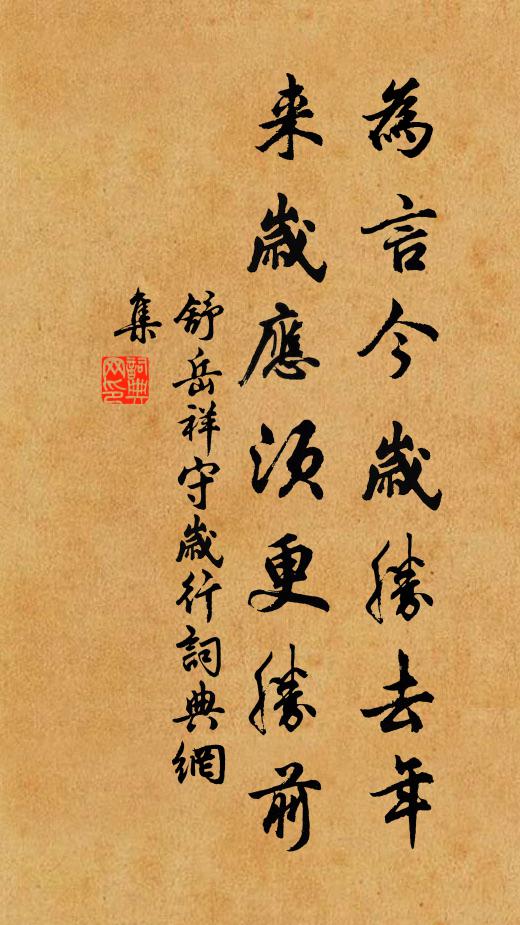 為言今歲勝去年
来歲應須更勝前
舒岳祥守歲行詞典網
集
詞典网印